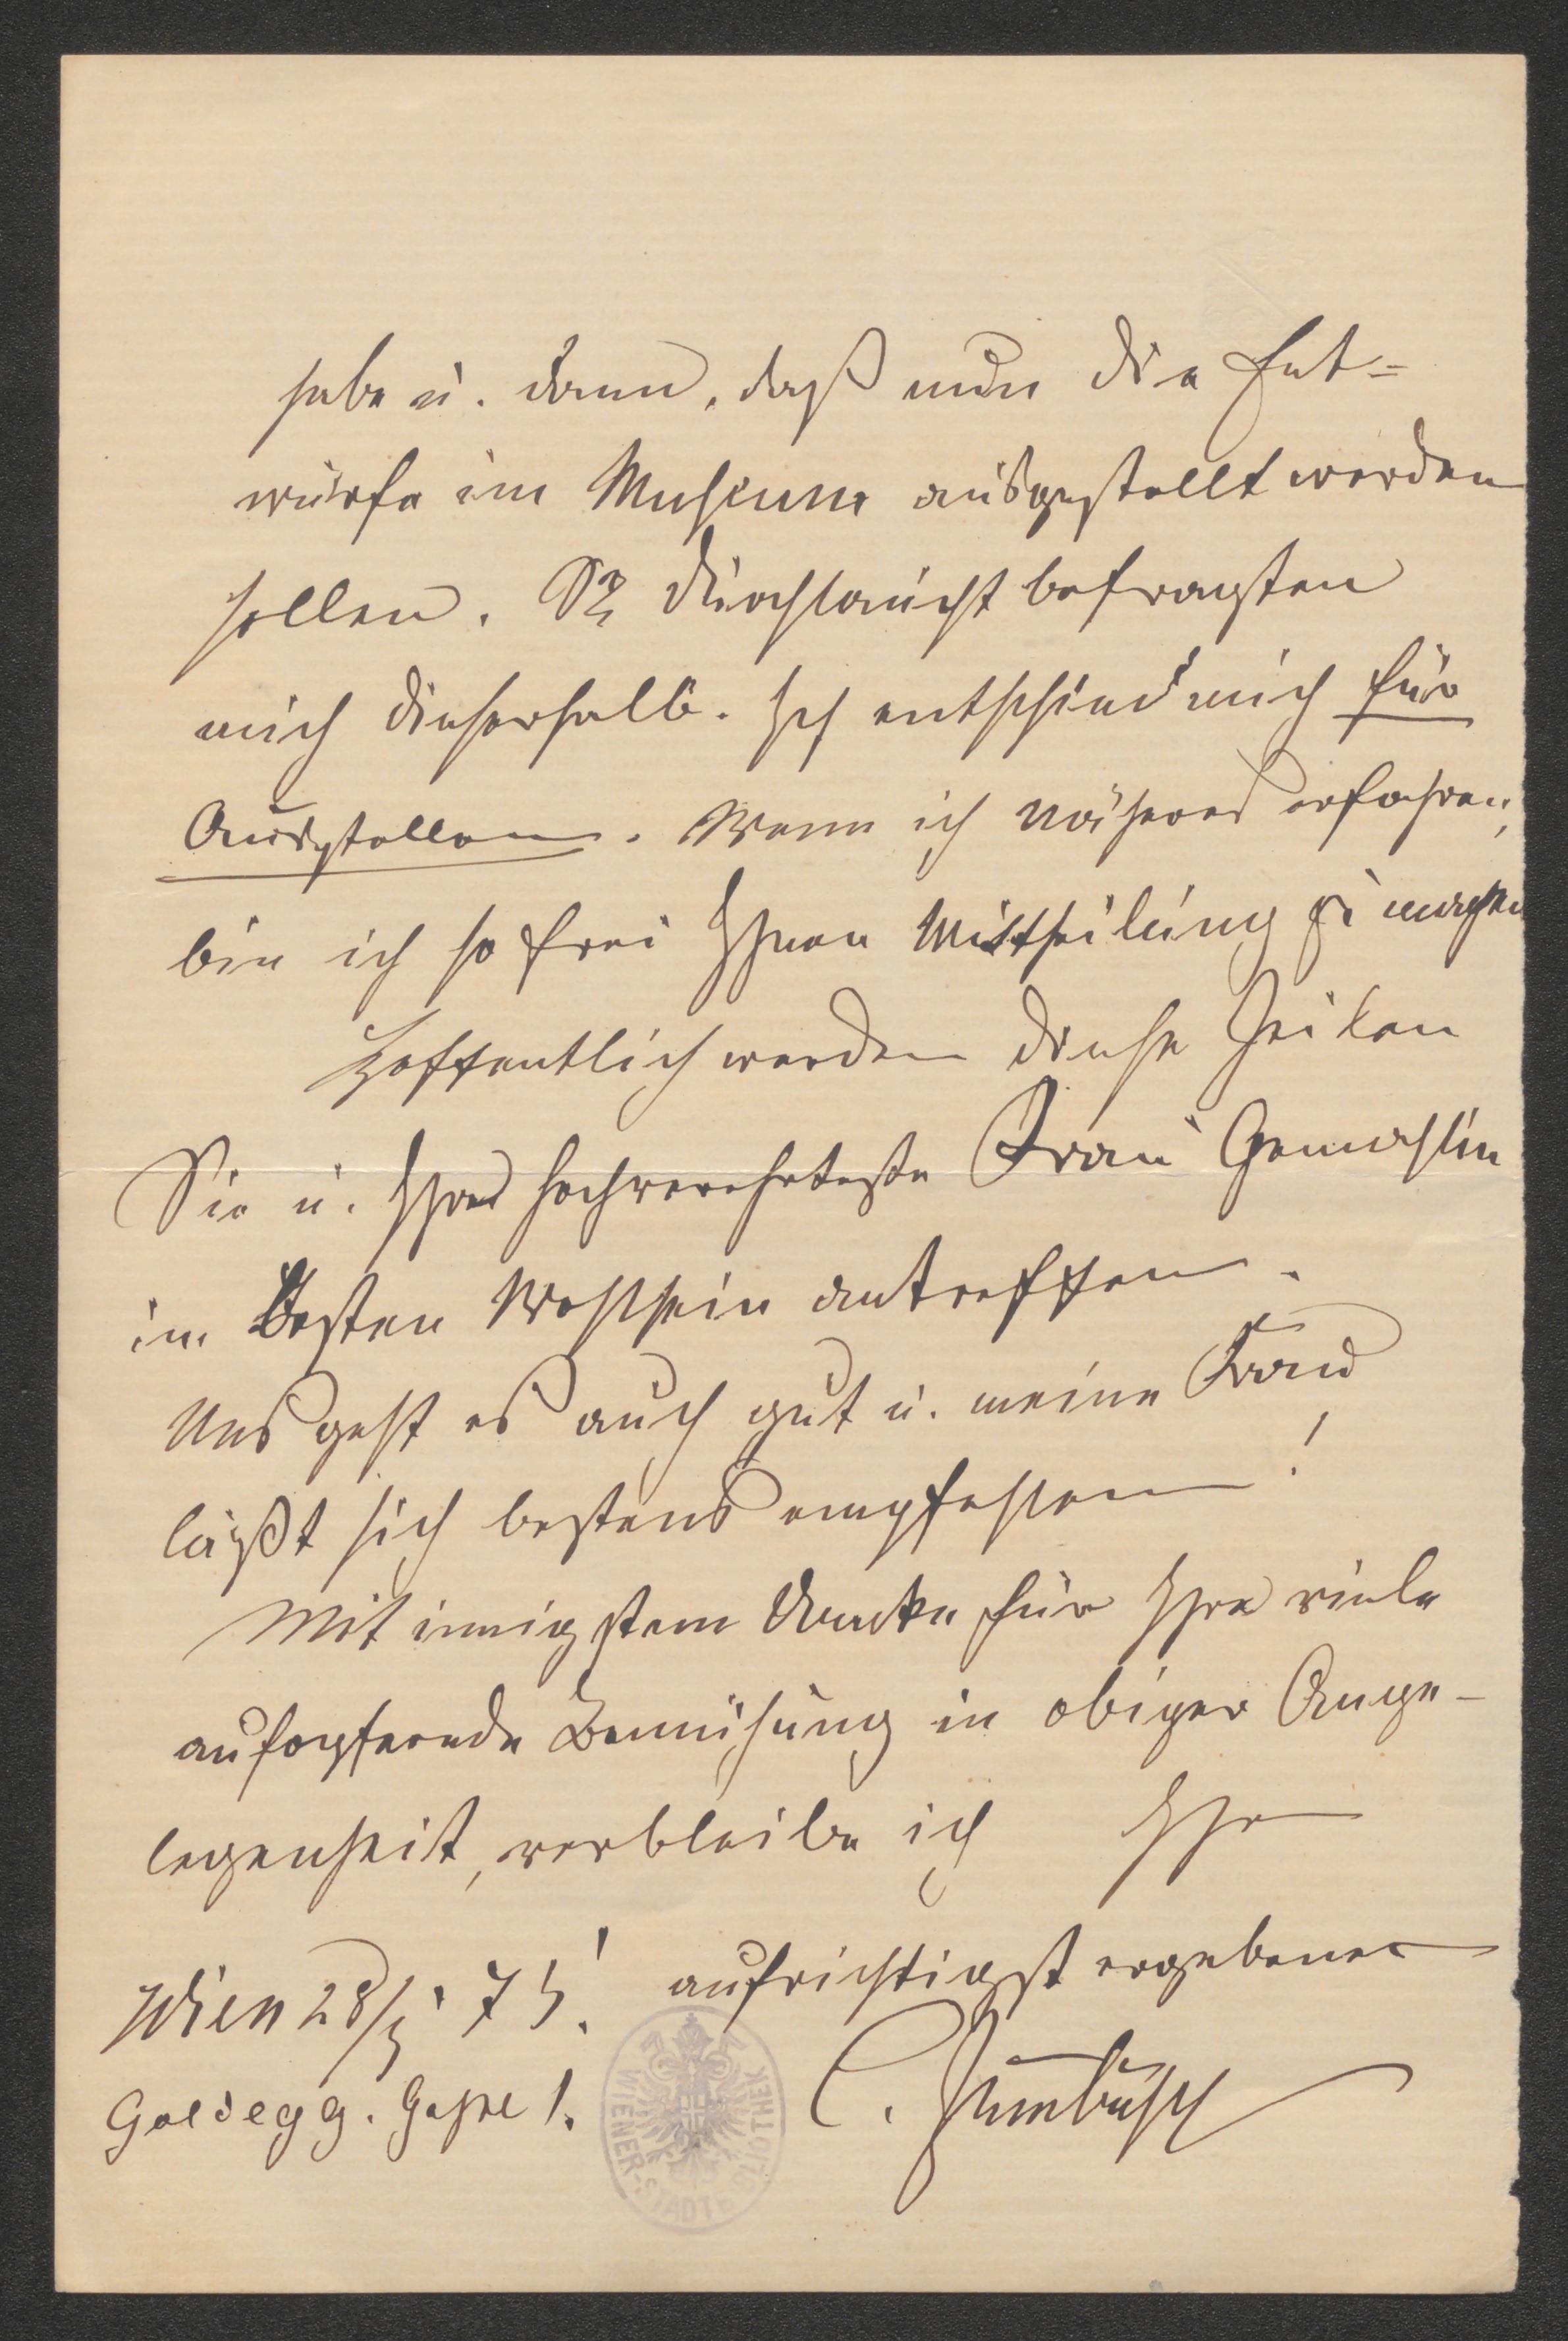 habe u. dann, daß nun die Ent=
würfe im Museum ausgestellt werden
sollen. Sr Durchlaucht befragten
mich dieserhalb. Ich entschied mich für
Ausstellen. Wenn ich näheres erfahren,
bin ich so frei Ihnen Mittheilung zu machen
Hoffentlich werden diese Zeilen
Sie u. Ihre hochverehrteste Frau Gemahlin
im besten Wohlsein antreffen.
Uns geht es auch gut u. meine Frau
läßt sich bestens empfehlen!
Mit innigstem Danke für Ihre viele
aufopfernde Bemühung in obiger Ange-
legenheit, verbleibe ich Ihr
aufrichtigst ergebener
Wien 28/ 75.
Goldegg. Gasse 1.
C. Zumbusch
WIENER-STADTBIBLIOTHEK